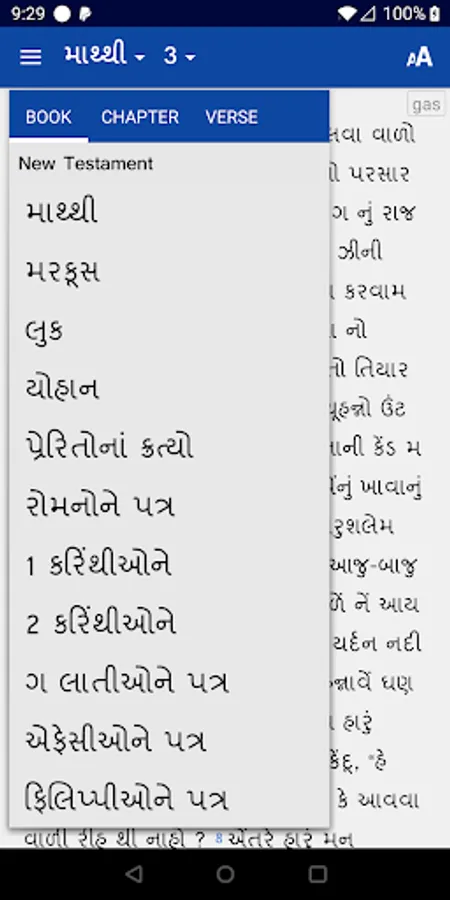 9:29 100%
માથ્થી 3 AA
gas
BOOK CHAPTER VERSE
New Testament
માથ્થી
મરકૂસ
લુક
યોહાન
પ્રેરિતોનાં ક્રત્યો
રોમનોને પત્ર
1 કરિંથીઓને
2 કરિંથીઓને
ગ લાતીઓને પત્ર
એફેસીઓને પત્ર
ફિલિપ્પીઓને પત્ર
વાળો
પરસાર
ગ નું રાજ
ઝીની
કરવામ
નો
તિયાર
ઉંટ
કેંડ મ
ખાવાનું
આજુ-બાજુ
નેં આય
યર્દન નદી
ઘણ
હારું
"હે
કે આવવા
વાળી રીહ થી નાહો ? 8 એંતરે હારં મન